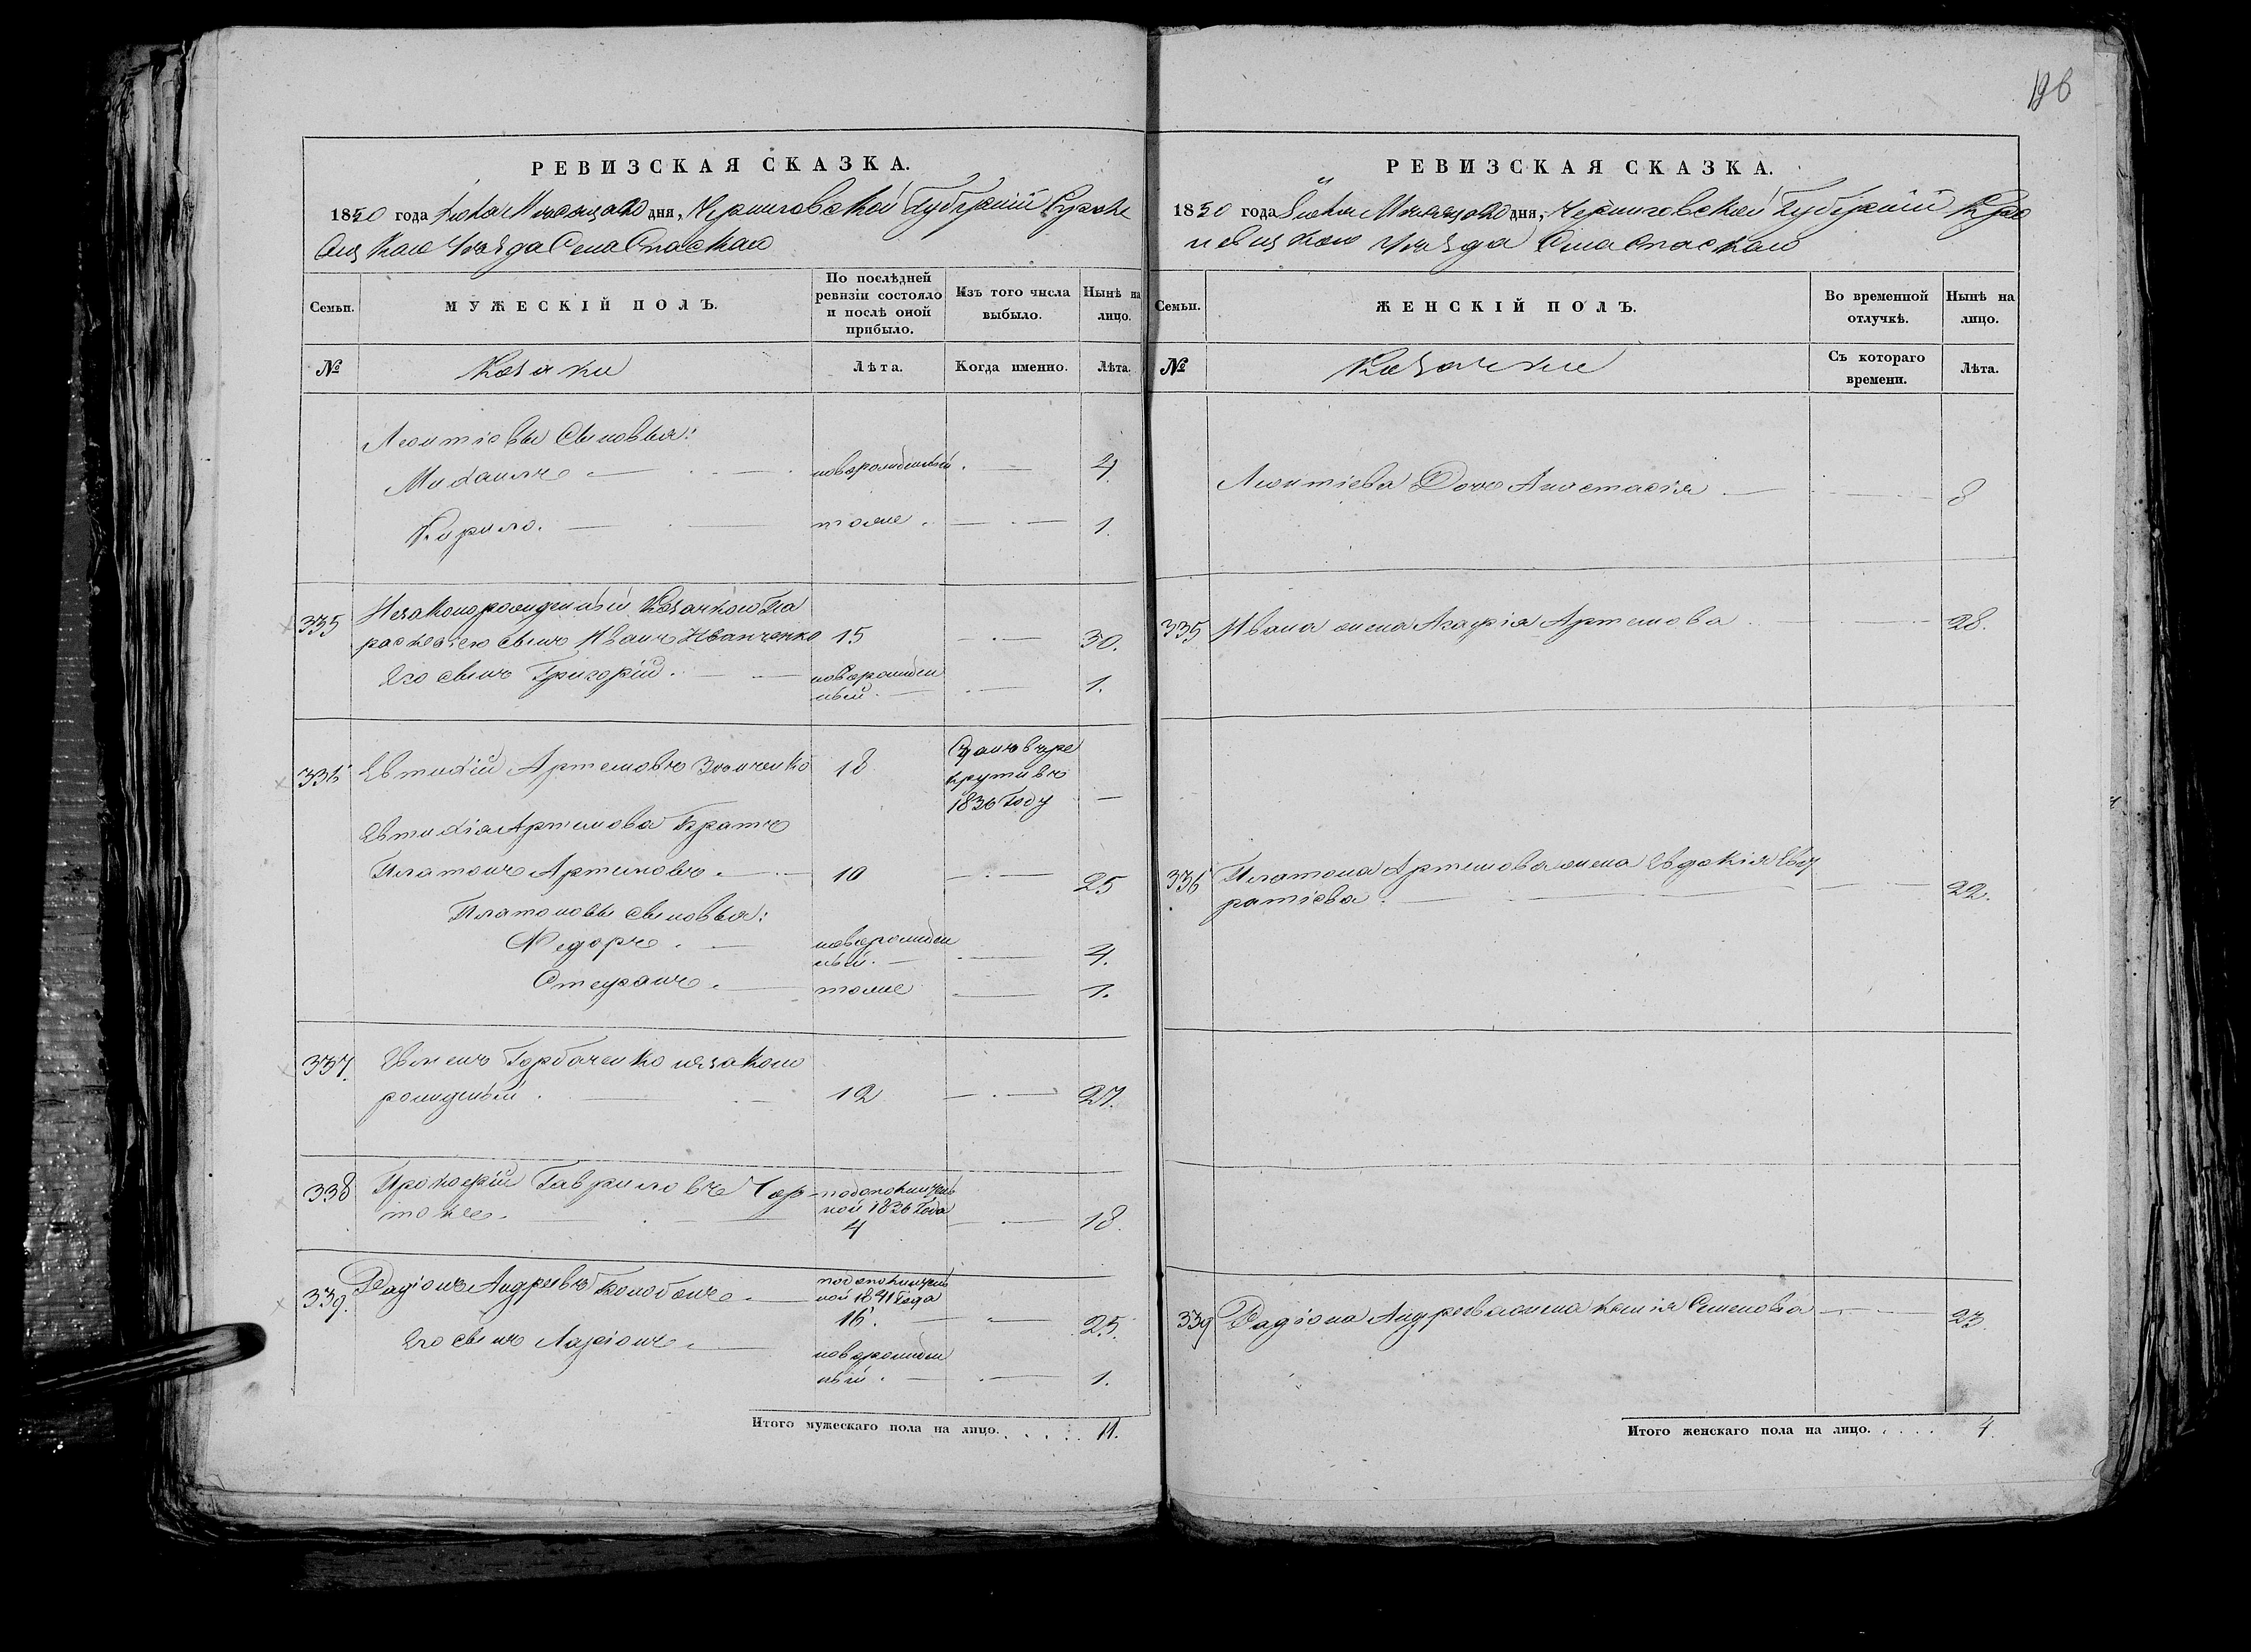 196
РЕВИЗСКАЯ СКАЗКА.
1850 года Месяца 20 дня, Черниговской Губерніи
Уезда Села Спаскаго
Семьи.
МУЖЕСКІЙ ПОЛЪ.
По послѣдней ревизіи состояло и послѣ оной прибыло.
Изъ того числа выбыло.
Нынѣ на лицо.
№
Козаки
Лѣта.
Когда именно.
Лѣта.
Леонтіевы Сыновья:
Михаилъ новорожденный 4
Кирило. тоже 1.
335 Незаконорожденный Козачкою Па
раскевіею сынъ Иванъ Иванченко 15 30.
Его сынъ Григорій. новорожден
ный. 1.
336 Евтихій Артемовъ 18 Сданъ в ре
крути въ
1836 Году
Евтихія Артемова Братъ
Платонъ Артемовъ. 10 25
Платоновы сыновья:
Федоръ. новорожден
ный. 4.
Стефанъ. тоже 1.
337. Горбаченко незаконо
рожденый 12 27.
338 Прокофій Гавриловъ Чор
1836 Года
4 18.
339. Радіонъ Андреевъ
1841 Года
16. 25.
Его сынъ Ларіонъ. новорожден
ный. 1.
Итого мужескаго пола на лицо. 11.
РЕВИЗСКАЯ СКАЗКА.
1850 года Месяца 20 дня, Черниговской Губерніи Кро
левецкаго Уезда Села Спаскаго
Семьи.
ЖЕНСКІЙ ПОЛЪ.
Во временной отлучкѣ.
Нынѣ на лицо.
№
Козачки
Съ котораго времени.
Лѣта.
Леонтіева Дочь Анастасія 8
335 Ивана жена Агафія Артемова 28.
336 Платона Артемова жена Евдокія Ев
22.
339 Радіона Андреева жена Ксенія Семенова 23.
Итого женскаго пола на лицо. 4.